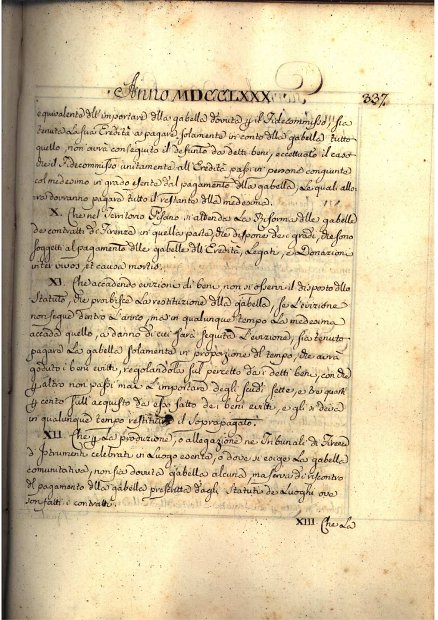 Anno MDCCLXXX. 337
equivalente all'importare della gabella dovuta p il Fidecommisso, sia
tenuta la sua Eredità a pagare solamente in conto della gabella tutto
quello, non avrà conseguito il defunto da detti beni, eccettuato il caso
che il Fidecommisso unitamente all'Eredità passi in persone congiunte
col medesimo in grado esente dal pagamento della gabella, le quali allo-
ra dovranno pagare tutto il restante della medesima.
X. Che nel Territorio Pisano si attenda la Riforma delle gabelle
de contratti di Firenze in quella parte, che dispone de i gradi, che sono
soggetti al pagamento delle gabelle dell'Eredità, Legati, e Donazioni
inter vivos, et causa mortis.
XI. Che accadendo evizione di beni non si osservi il disposto dello
Statuto, che proibisce la restituzione della gabella, se l'evizione
non segue dentro l'anno, ma in qualunque tempo la medesima
accada quello, a danno di cui sarà seguita l'evizione, sia tenuto
pagare la gabella solamente in proporzione del tempo, che avrà
goduto i beni evitti, regolandosi sul percetto da i detti beni, con che
p altro non passi mai l'importare degli scudi sette, e tre quarti
p cento sull'acquisto da esso fatto de i beni evitti, e gli si deva
in qualunque tempo restituire il sopropagato.
XII. Che p la produzione, o allegazione ne Tribunali di Firenze
d'Istrumenti celebrati in Luogo esente, o dove si esige la gabella
comunitativa, non sia dovuta gabella alcuna, ma serva di riscontro
del pagamento della gabella prescritta dagli Statuti de Luoghi ove
son fatti i contratti.
XIII. Che la